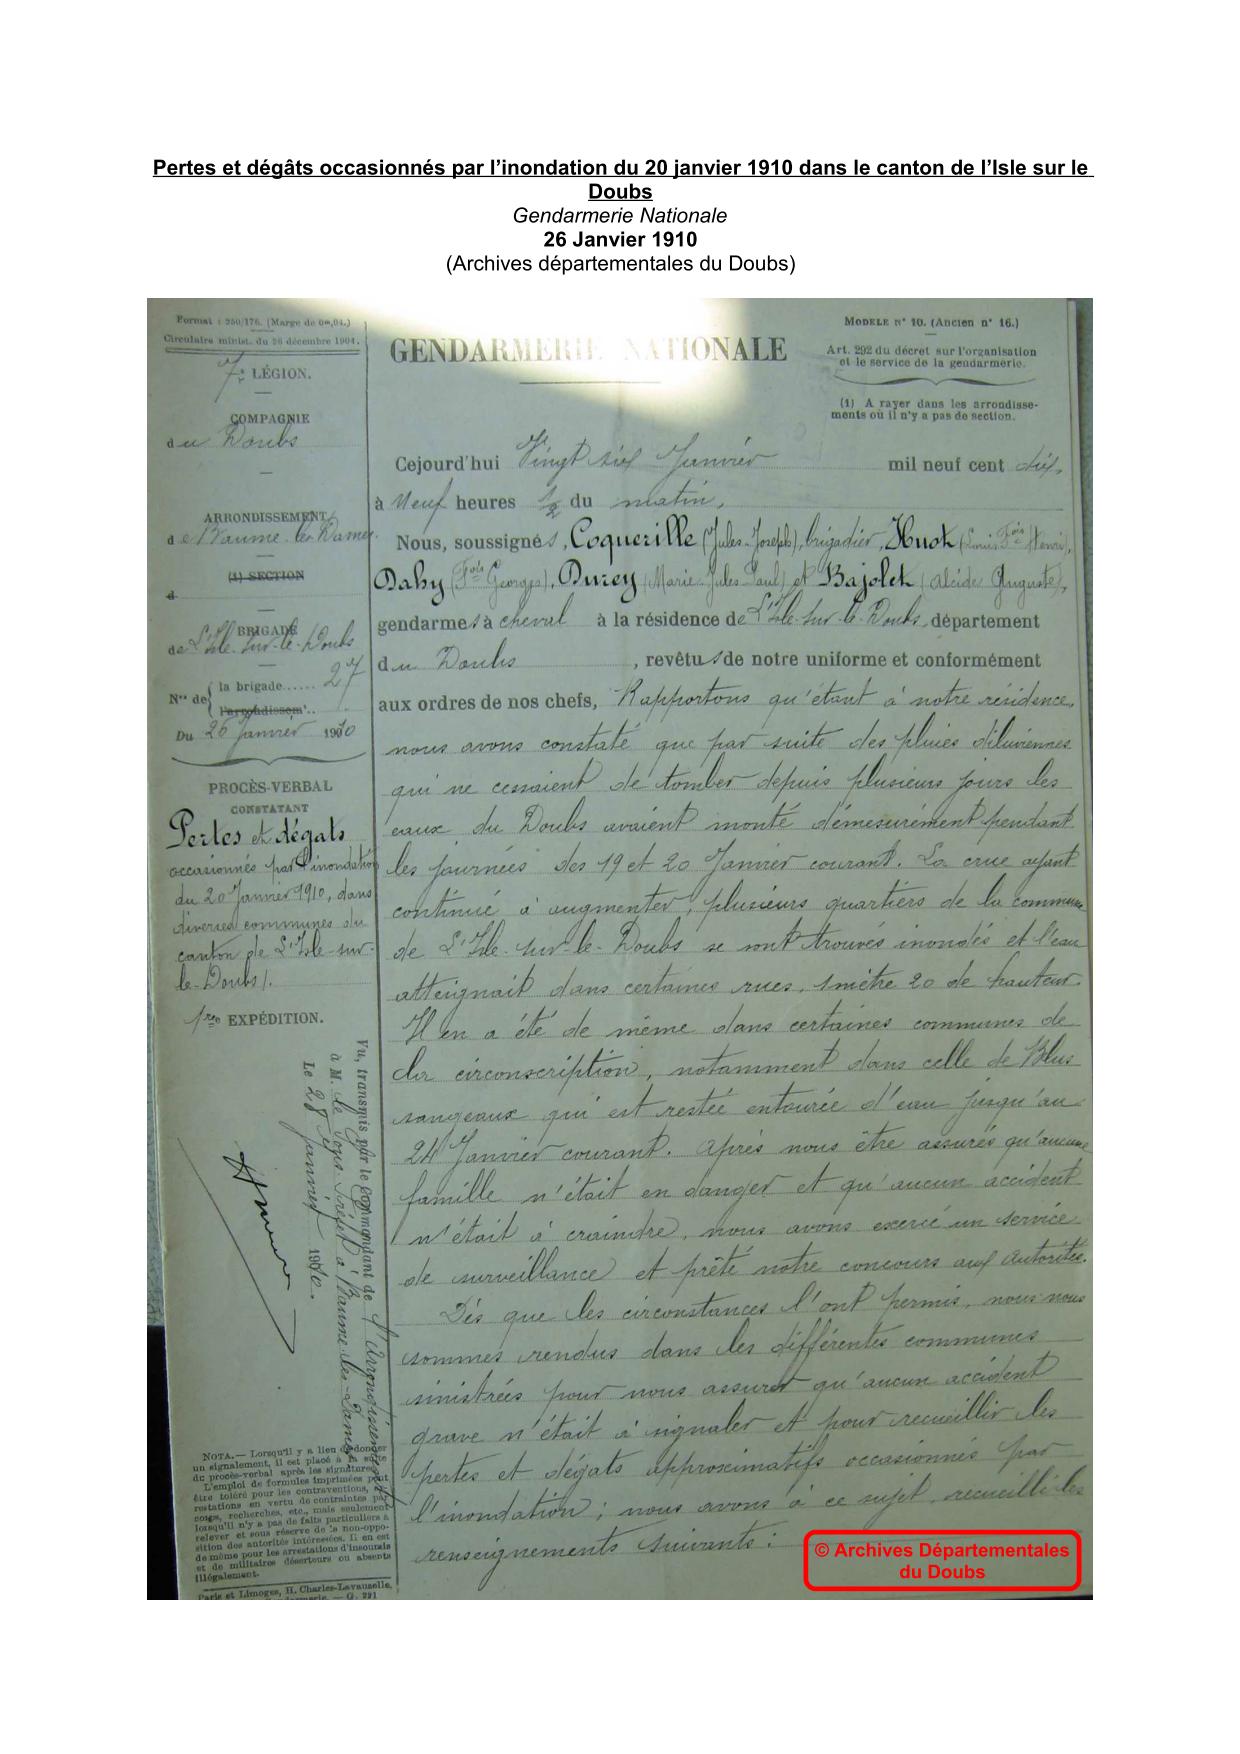 Pertes et dégâts occasionnés par l’inondation du 20 janvier 1910 dans le canton de l’Isle sur le
Doubs
Gendarmerie Nationale
26 Janvier 1910
(Archives départementales du Doubs)
Format : 250/176. (Marge de 0m,04.)
Circulaire minist. du 26 décembre 1904.
7e LÉGION.
COMPAGNIE
du Doubs
ARRONDISSEMENT
de Baume-les-Dames.
(1) SECTION
d
BRIGADE
de L'Isle-sur-le-Doubs
Nos de la brigade...... 27
l'arrondissemt..
Du 26 Janvier 1910
PROCÈS-VERBAL
CONSTATANT
Pertes et dégats
occasionnés par l'inondation
du 20 Janvier 1910, dans
diverses communes du
canton de L'Isle-sur-
le-Doubs/.
1re EXPÉDITION.
Vu, transmis par le Commandant de l'Arrondissement
à M. le Sous-Préfet à Baume-les-Dames
Le 28 Janvier 1910.
NOTA. — Lorsqu'il y a lieu de donner
un signalement, il est placé à la suite
du procès-verbal après les signatures.
L'emploi de formules imprimées peut
être toléré pour les contraventions,
restations en vertu de contraintes par
corps, recherches, etc., mais seulement
lorsqu'il n'y a pas de faits particuliers à
relever et sous réserve de la non-oppo-
sition des autorités intéressées. Il en est
de même pour les arrestations d'insoumis
et de militaires déserteurs ou absents
illégalement.
Paris et Limoges, H. Charles-Lavauzelle,
— G. 291
GENDARMERIE NATIONALE
MODÈLE N° 10. (Ancien n° 16.)
Art. 292 du décret sur l'organisation
et le service de la gendarmerie.
(1) A rayer dans les arrondisse-
ments où il n'y a pas de section.
Cejourd'hui Vingt six Janvier mil neuf cent dix,
à Neuf heures 1/2 du matin,
Nous, soussignés, Coquerille (Jules-Joseph), brigadier, Huot (Louis Fois Henri),
Dahy (Fois Georges), Durey (Marie-Jules-Paul) et Bajolet (Alcide Auguste),
gendarmes à cheval à la résidence de L'Isle-sur-le-Doubs, département
du Doubs, revêtus de notre uniforme et conformément
aux ordres de nos chefs, Rapportons qu'étant à notre résidence,
nous avons constaté que par suite des pluies diluviennes
qui ne cessaient de tomber depuis plusieurs jours les
eaux du Doubs avaient monté démesurément pendant
les journées des 19 et 20 Janvier courant. La crue ayant
continué à augmenter, plusieurs quartiers de la commune
de L'Isle-sur-le-Doubs se sont trouvés inondés et l'eau
atteignait dans certaines rues, 1 mètre 20 de hauteur.
Il en a été de même dans certaines communes de
la circonscription, notamment dans celle de Blus
sangeaux qui est restée entourée d'eau jusqu'au
24 Janvier courant. Après nous être assurés qu'aucune
famille n'était en danger et qu'aucun accident
n'était à craindre, nous avons exercé un service
de surveillance et prêté notre concours aux Autorités.
Dès que les circonstances l'ont permis, nous nous
sommes rendus dans les différentes communes
sinistrées pour nous assurer qu'aucun accident
grave n'était à signaler et pour recueillir les
pertes et dégats approximatifs occasionnés par
l'inondation ; nous avons à ce sujet, recueilli les
renseignements suivants :
© Archives Départementales
du Doubs